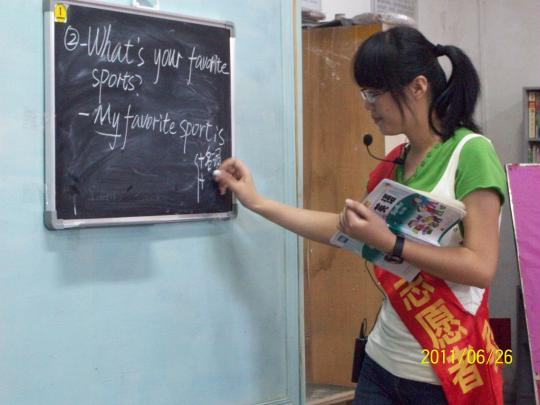 1
② - What's your favorite
sports?
- My favorite sport is
志愿者
2011/06/26